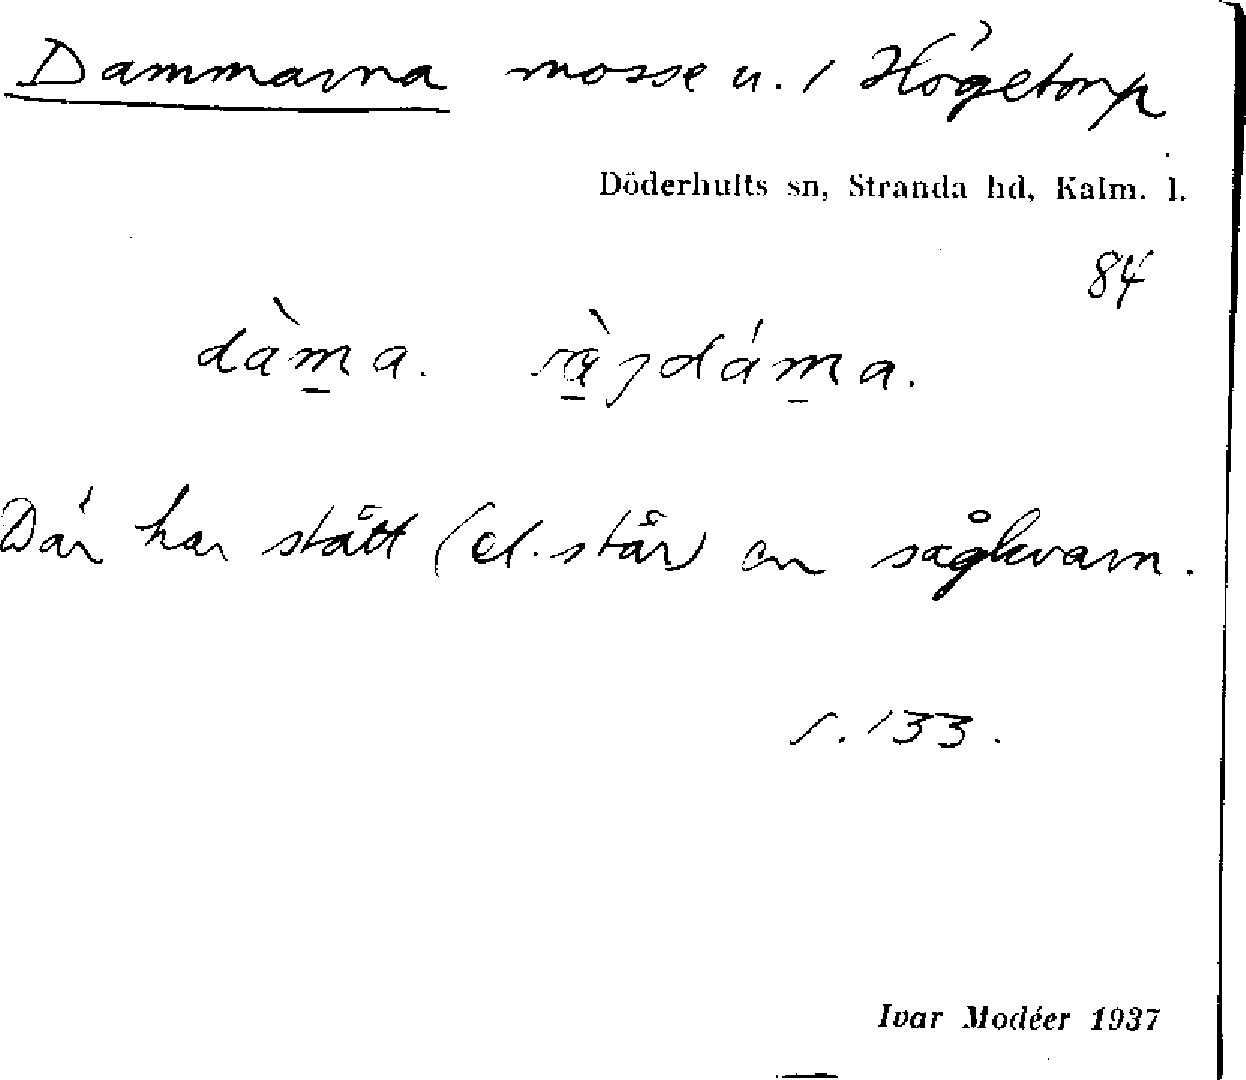 Dammarna mosse u. 1 Högetorp
Döderhults sn, Stranda hd, Kalm. l.
84
dàm̲a.
Där har stått (el. står) en sågkvarn.
s. 133.
Ivar Modéer 1937